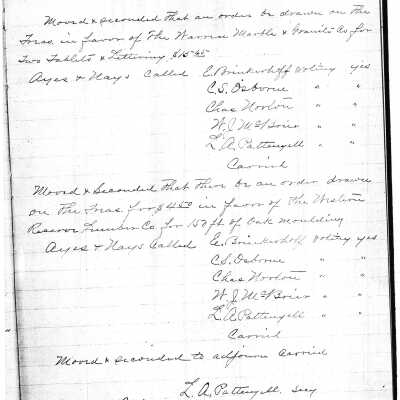 Moved & seconded that an order be drawn on the
Treas. in favor of The Warren Marble & Granite Co for
Two Tablets & Lettering $15.45
Ayes & Nays Called E Brinkerhoff voting yes
C.S. Osborne " "
Chas Norton " "
W.J. McBrier " "
L.A. Pattengell " "
Carried
Moved & Seconded that there be an order drawn
on the Treas for $4.50 in favor of The Western
Reserve Lumber Co for 150 ft of Oak moulding
Ayes & Nays Called E. Brinkerhoff voting yes
C.S. Osborne " "
Chas Norton " "
W.J. McBrier " "
L.A. Pattengell " "
Carried
Moved & seconded to adjourn Carried
L.A. Pattengell, Secy